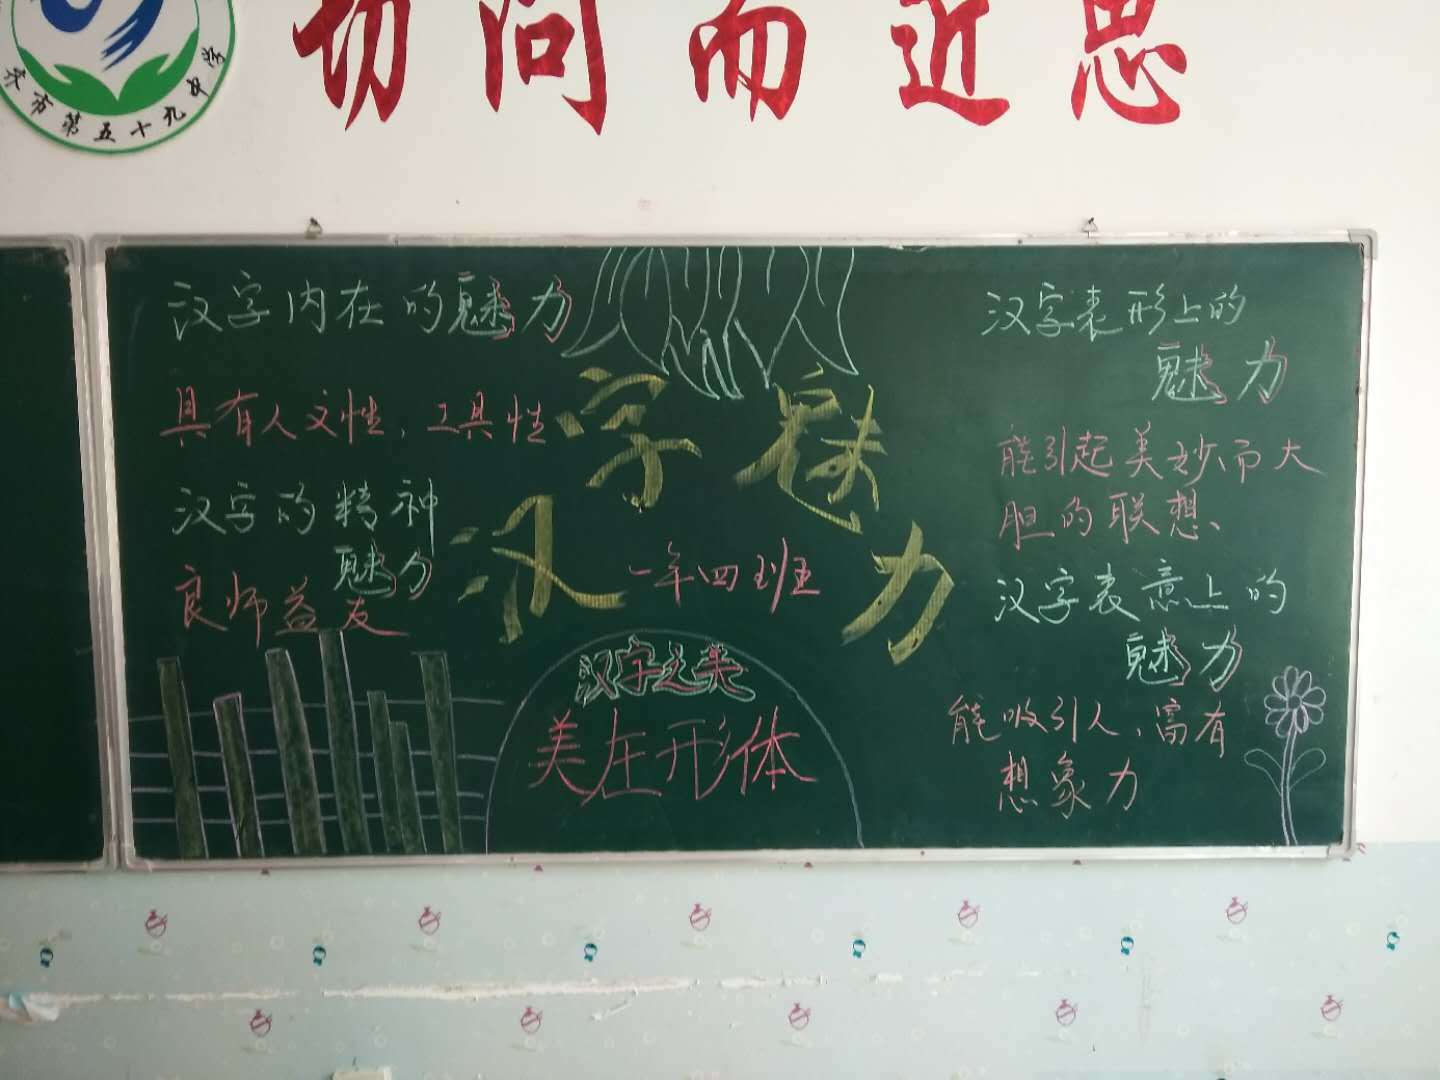 切问而近思
齐市第五十九中学
汉字内在的魅力
具有人文性、工具性
汉字的精神
魅力
良师益友
汉字魅力
一年四班
汉字之美
美在形体
汉字表形上的
魅力
能引起美妙而大
胆的联想、
汉字表意上的
魅力
能吸引人、富有
想象力